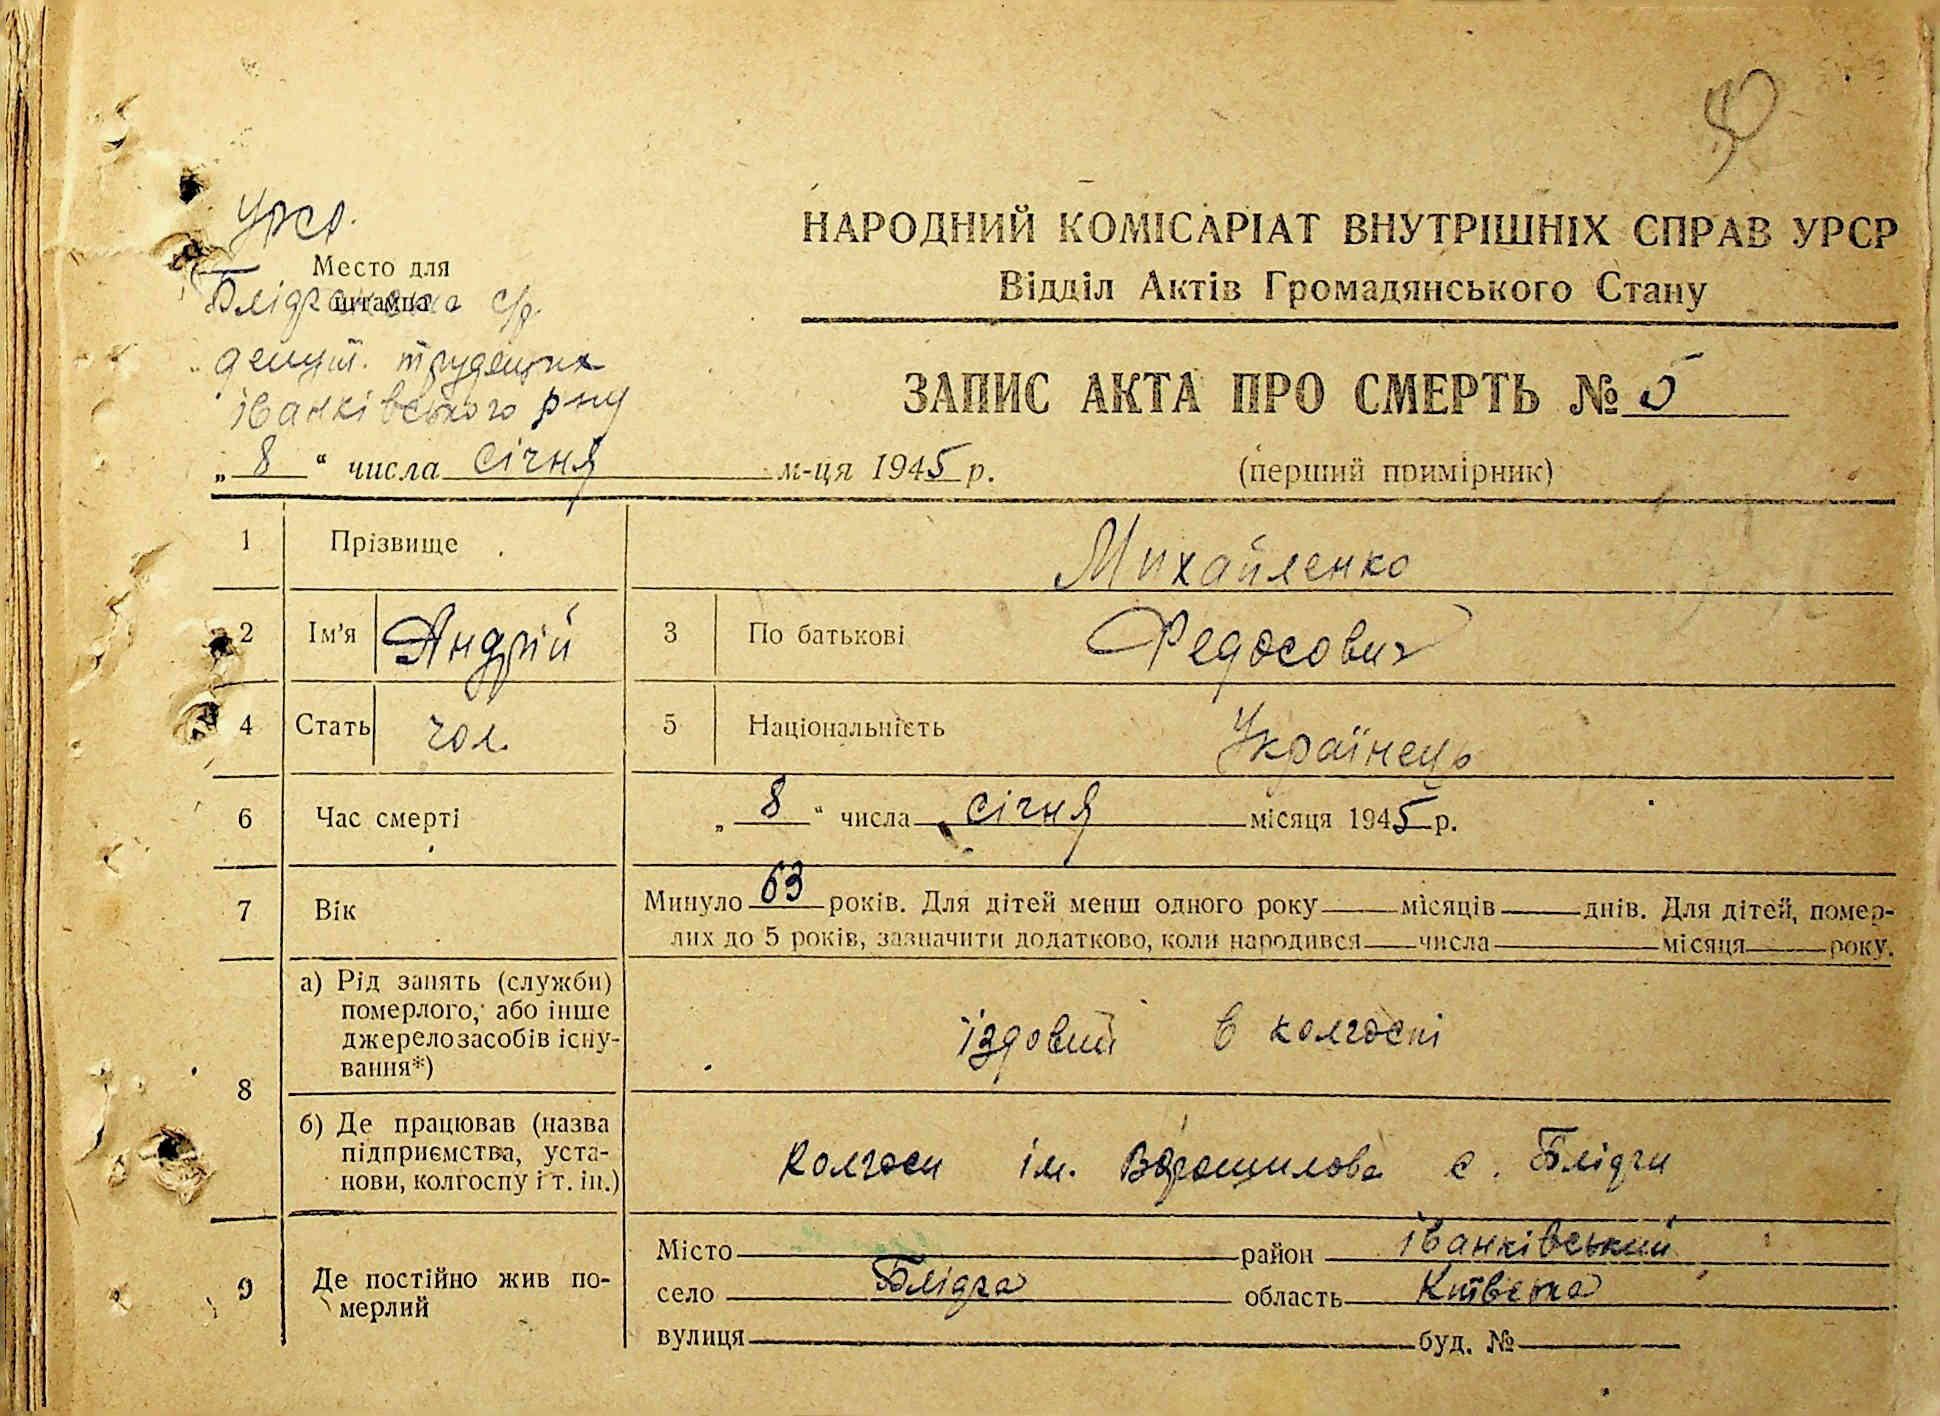 УРСР.
Место для
штампа
Блідчанська с/р.
депут. трудящих
іванківського р-ну
НАРОДНИЙ КОМІСАРІАТ ВНУТРІШНІХ СПРАВ УРСР
Відділ Актів Громадянського Стану
ЗАПИС АКТА ПРО СМЕРТЬ № 5
„ 8 “ числа січня м-ця 1945 р.
(перший примірник)
1 Прізвище Михайленко
2 Ім'я Андрій 3 По батькові Федосович
4 Стать чол. 5 Національність Українець
6 Час смерті „ 8 “ числа січня місяця 1945 р.
7 Вік Минуло 63 років. Для дітей менш одного року місяців днів. Для дітей, помер-
лих до 5 років, зазначити додатково, коли народився числа місяця року.
8 а) Рід занять (служби)
померлого, або інше
джерело засобів існу-
вання*)
їздовий в колгоспі
б) Де працював (назва
підприємства, уста-
нови, колгоспу і т. ін.)
Колгосп ім. Ворошилова с. Блідчи
9 Де постійно жив по-
мерлий
Місто район іванківський
село Блідча область Київська
вулиця буд. №